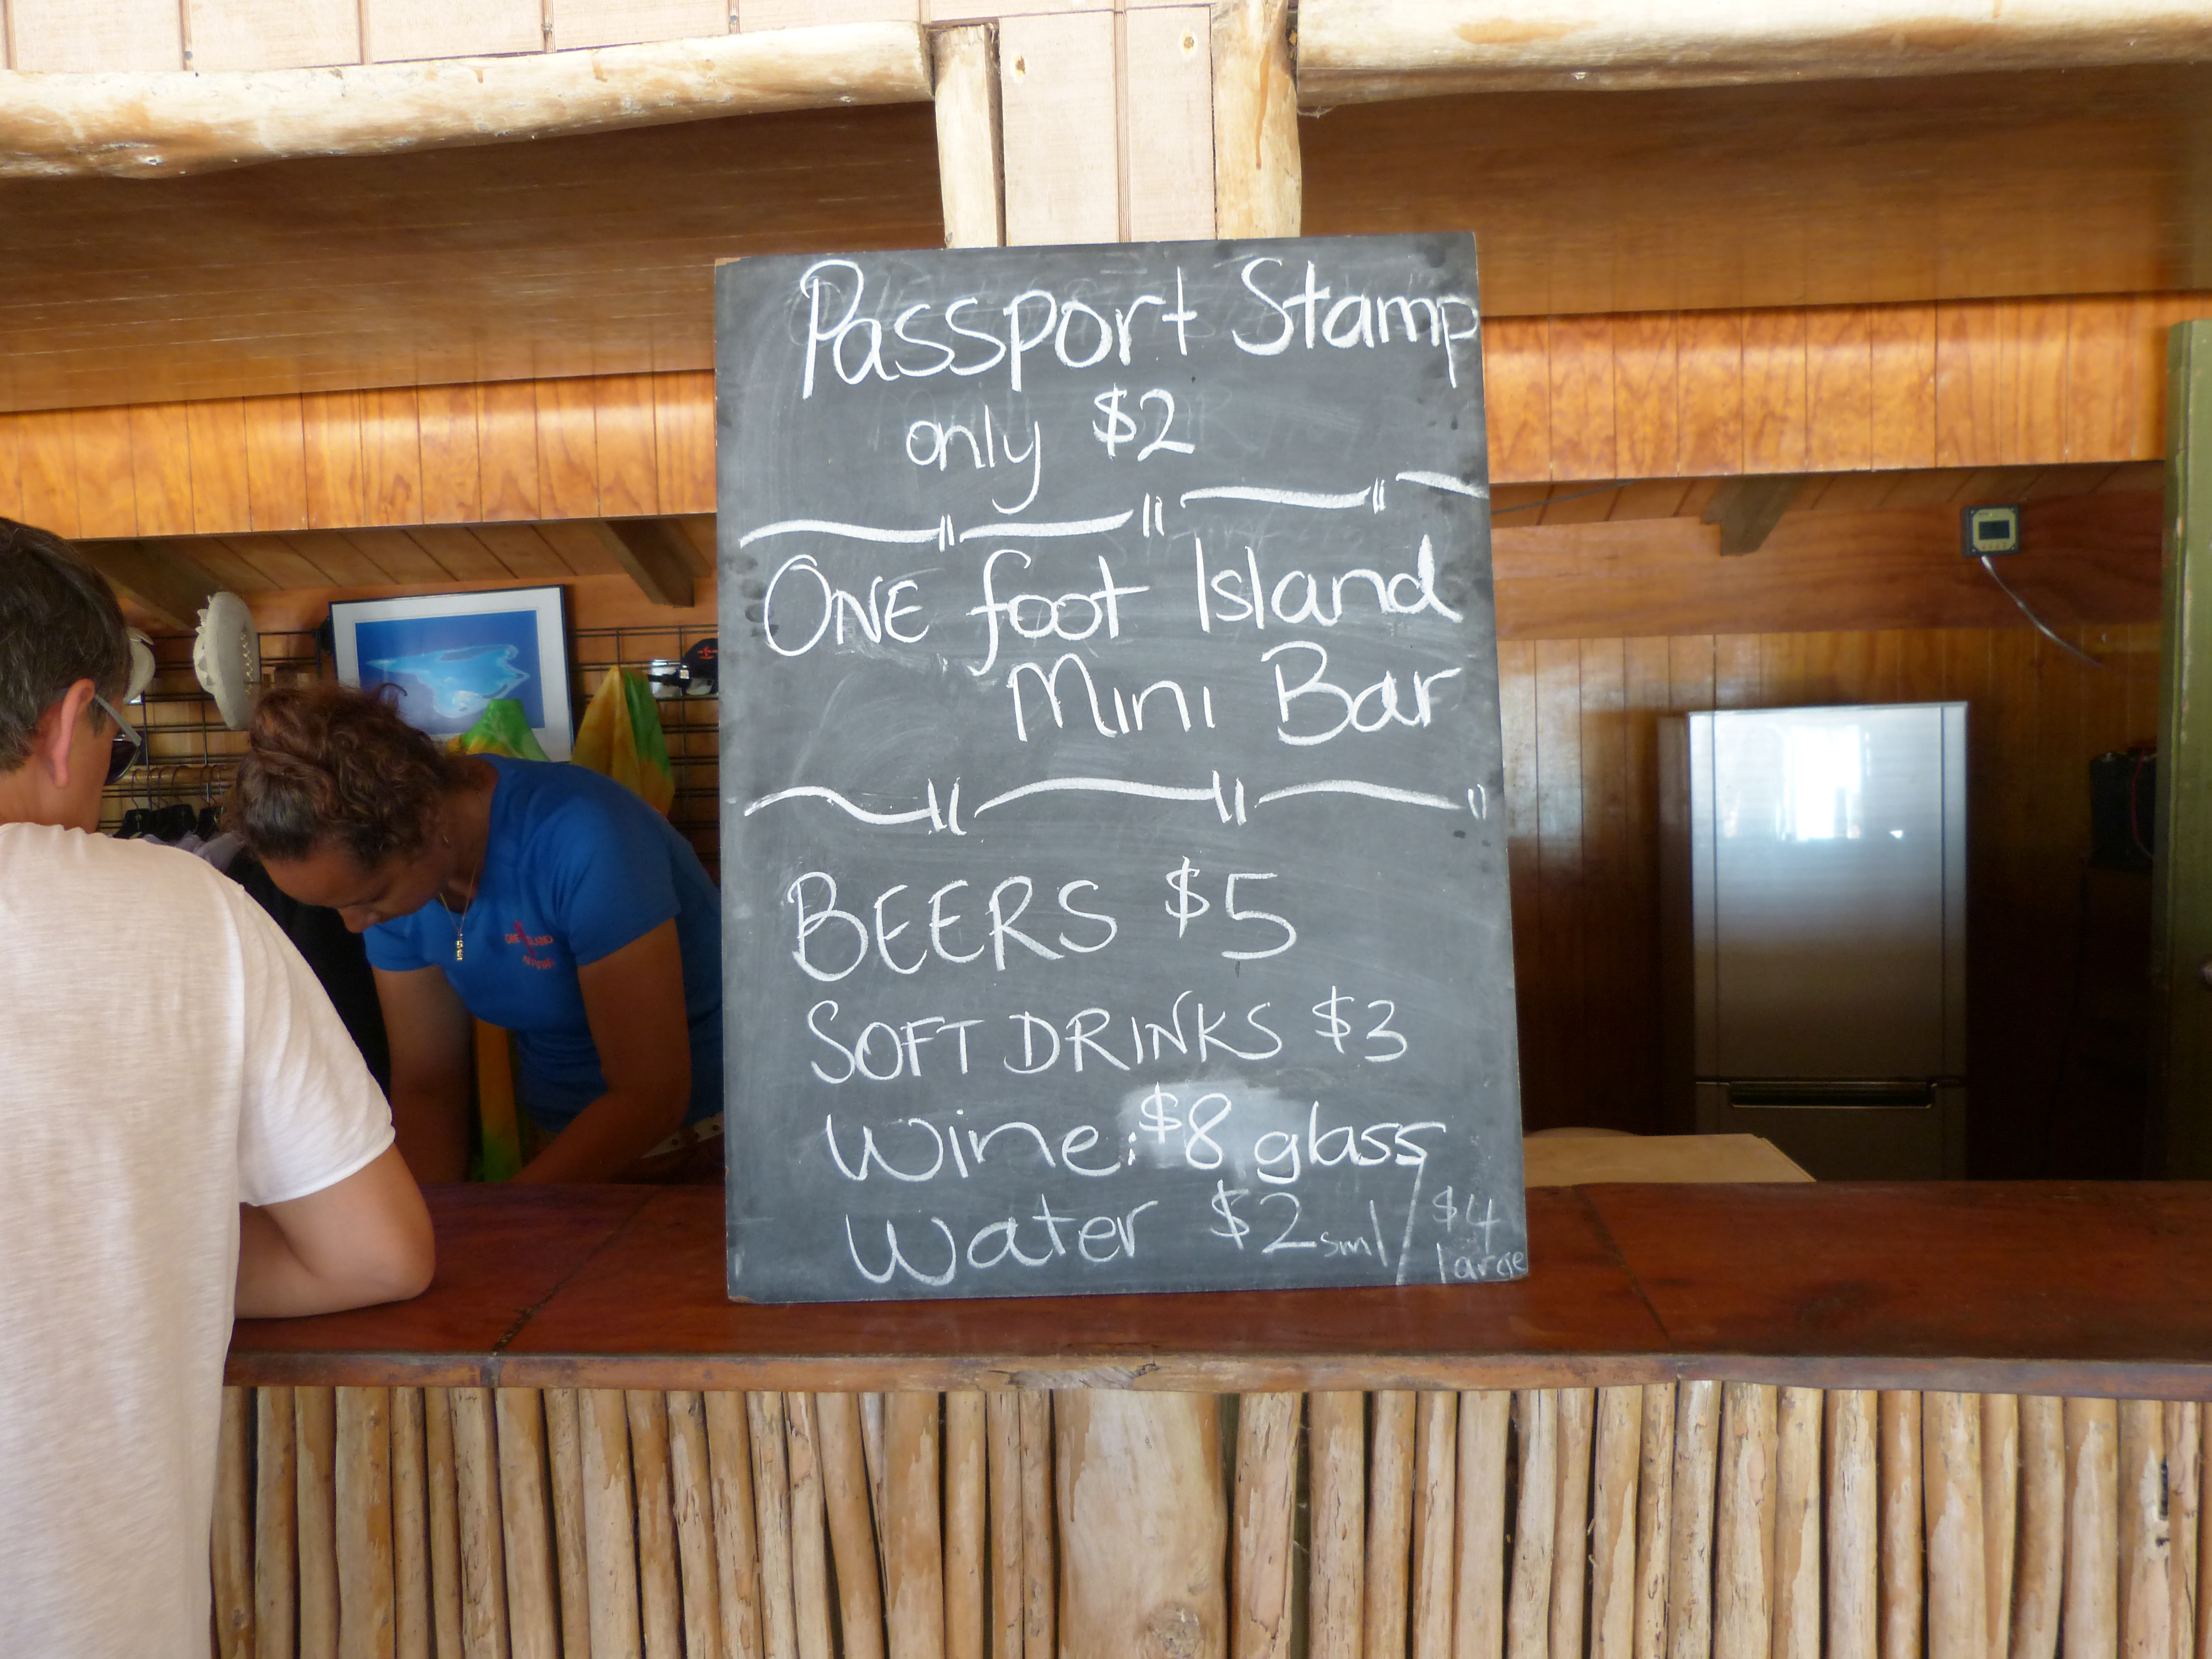 Passport Stamp
only $2
ONE foot Island
Mini Bar
BEERS $5
SOFT DRINKS $3
Wine: $8 glass
Water $2 sml / $4
large